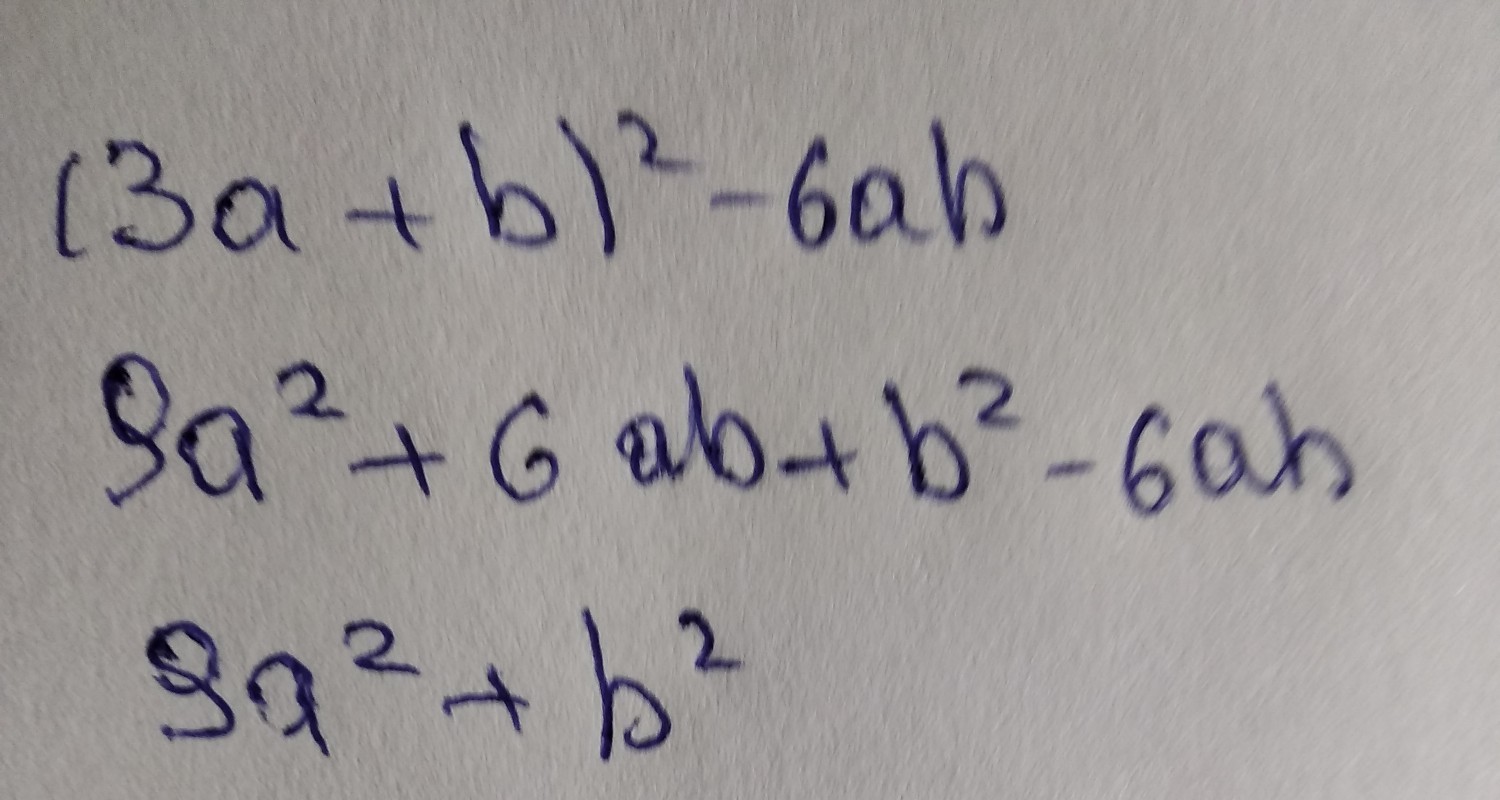 (3a + b)² - 6ab
9a² + 6 ab + b² - 6ab
9a² + b²